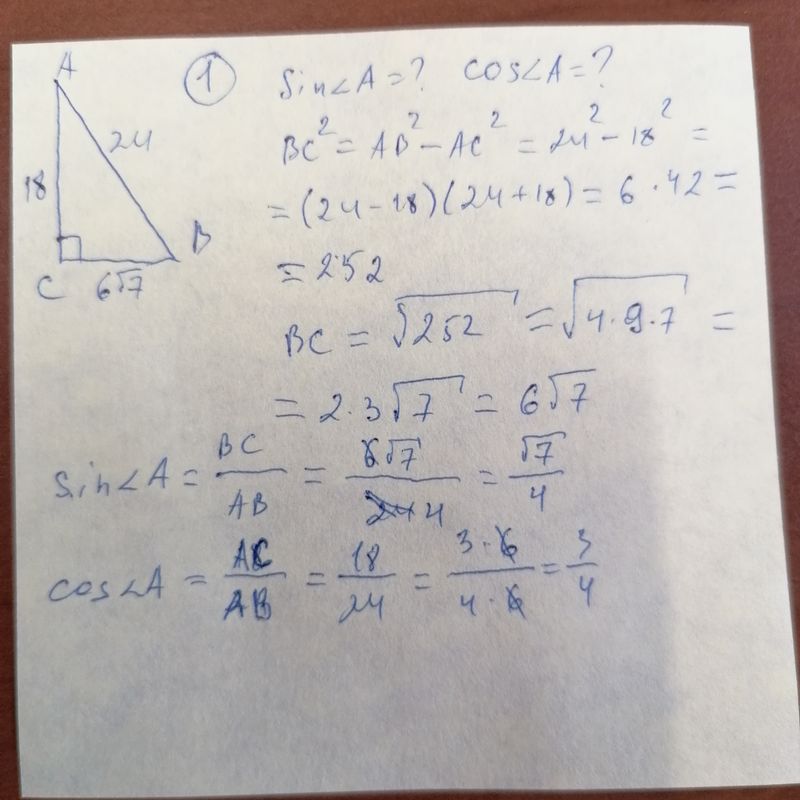 A
18
24
C
6√7
B
① sin∠A = ? cos∠A = ?
BC² = AB² − AC² = 24² − 18² =
= (24−18)(24+18) = 6 · 42 =
= 252
BC = √252 = √4·9·7 =
= 2·3√7 = 6√7
sin∠A = BC/AB = 6√7/24 4 = √7/4
cos∠A = AC/AB = 18/24 = 3·6/4·6 = 3/4